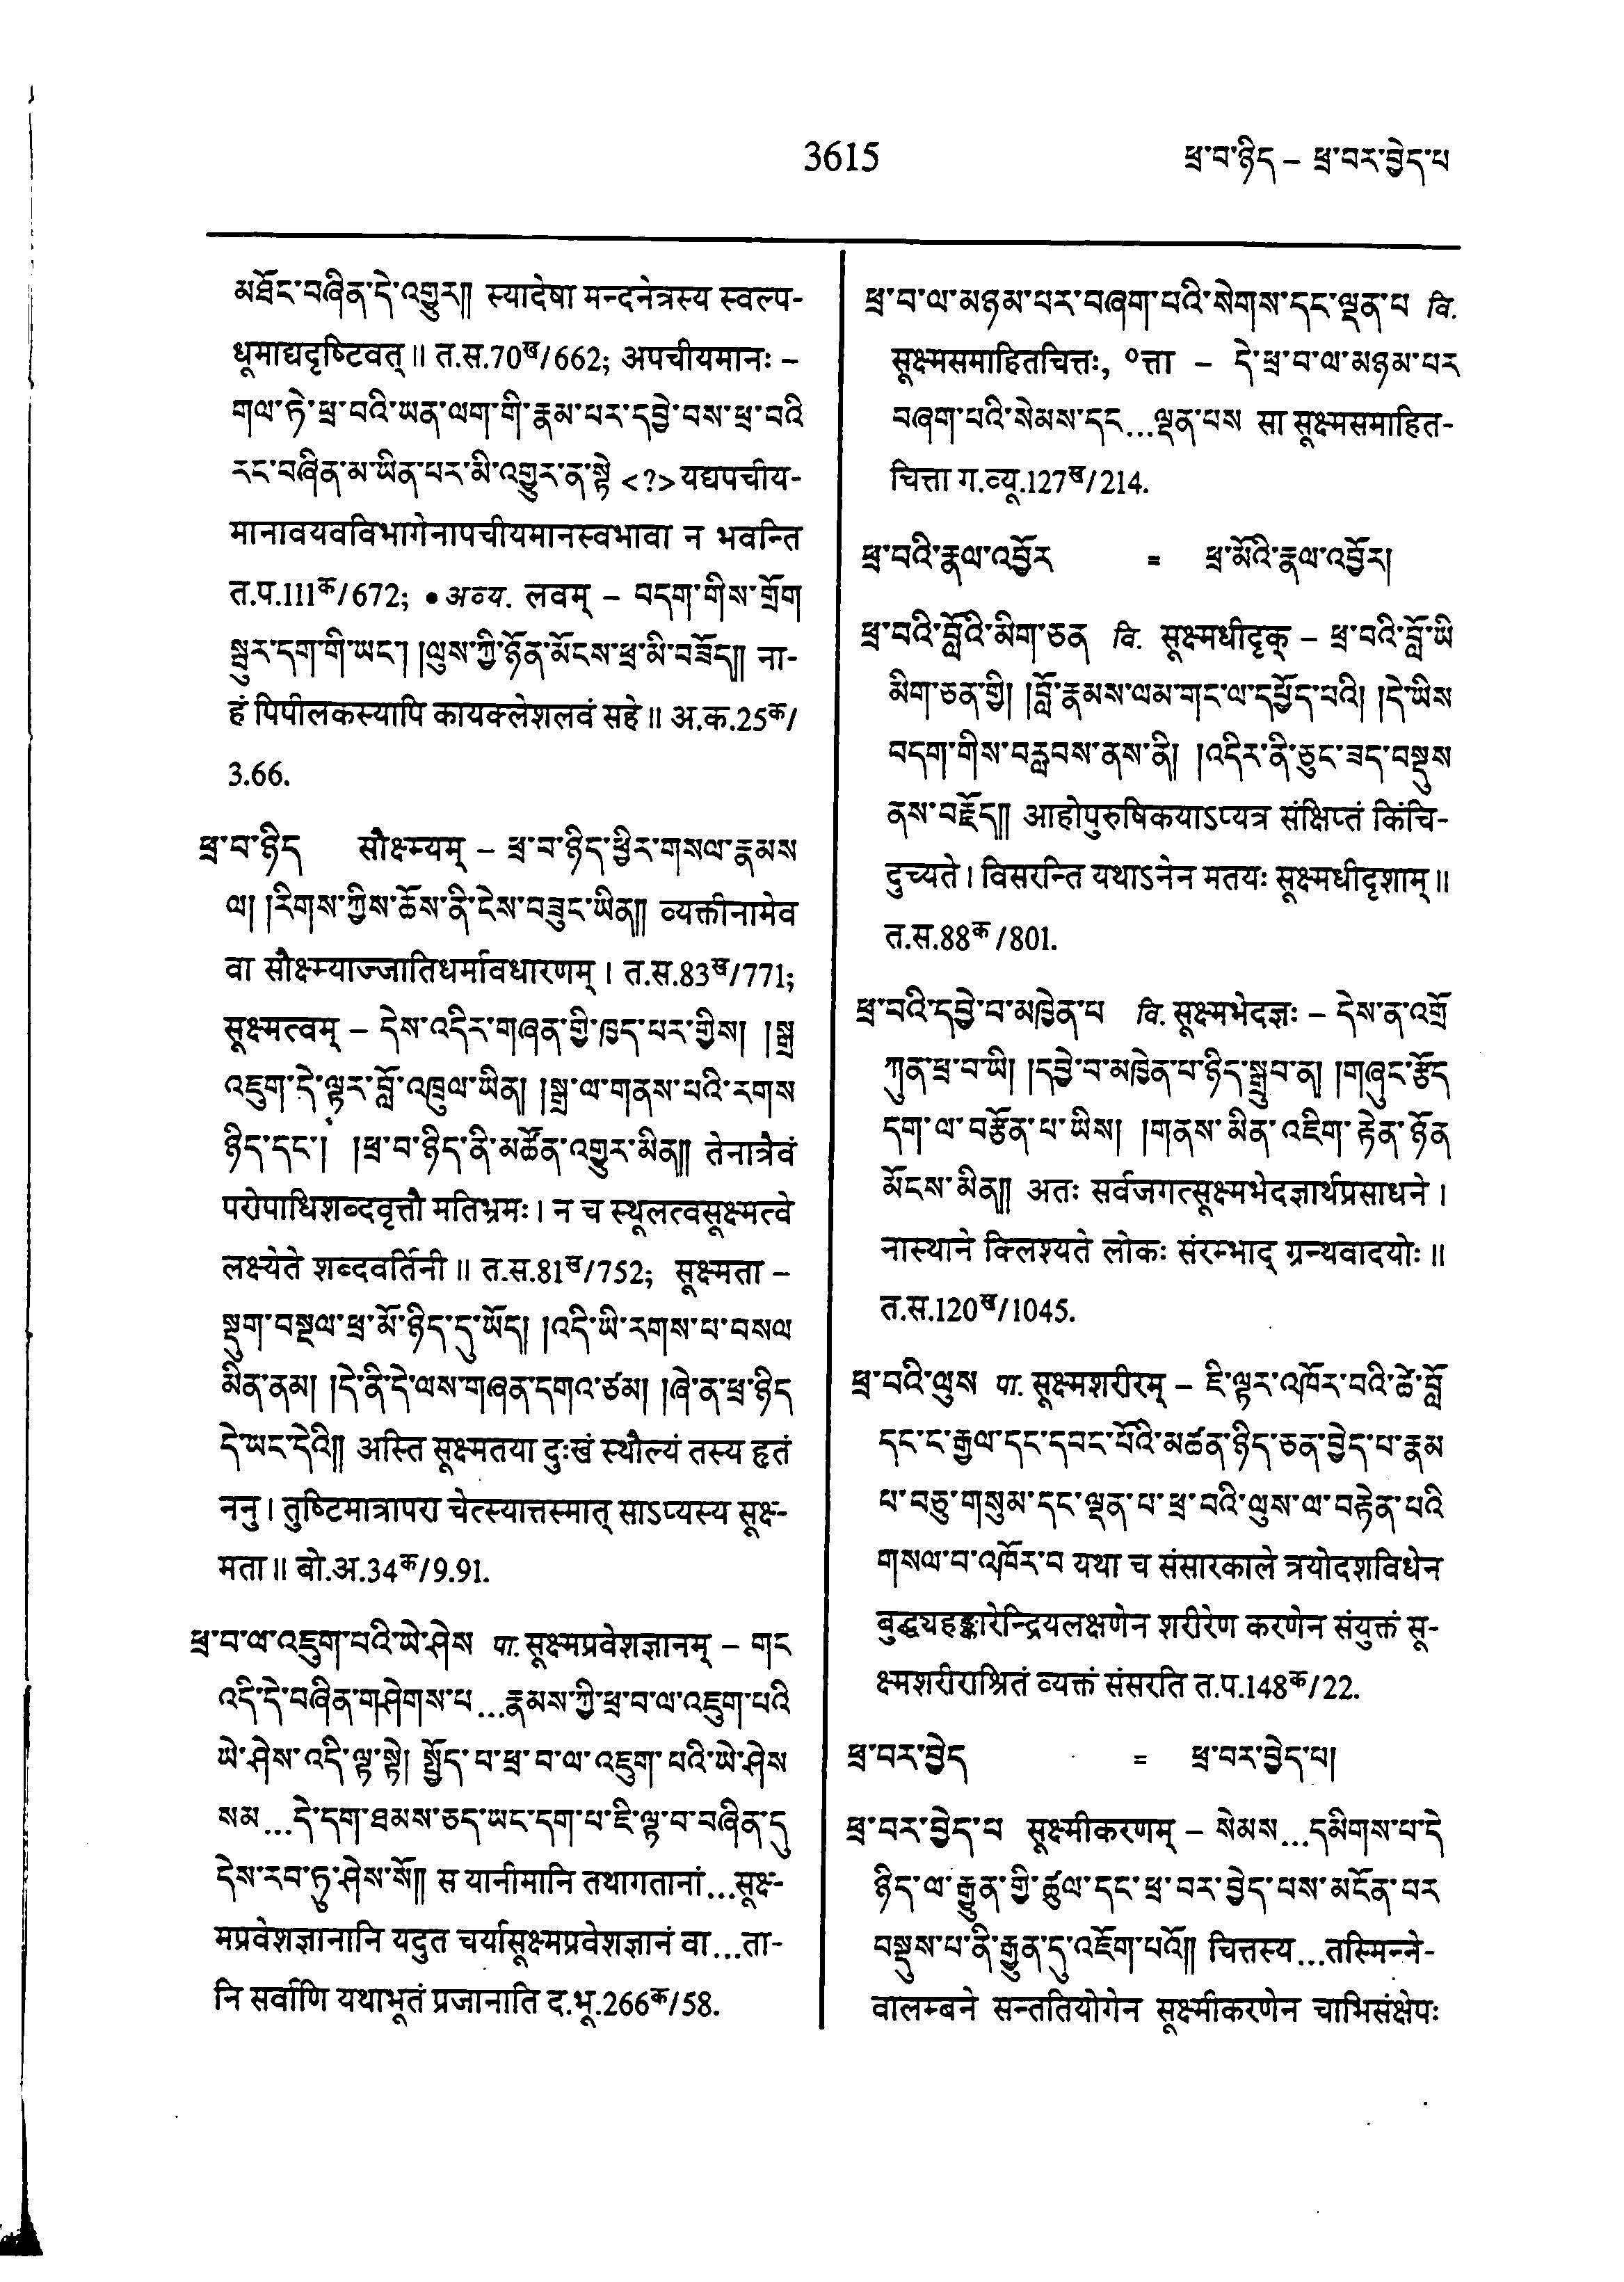 3615
ཕྲ་བ་ཉིད – ཕྲ་བར་བྱེད་པ
མཐོང་བཞིན་དེ་འགྱུར།། स्यादेषा मन्दनेत्रस्य स्वल्प-
धूमाद्यदृष्टिवत्॥ त.स.70ख/662; अपचीयमानः –
གལ་ཏེ་ཕྲ་བའི་ཡན་ལག་གི་རྣམ་པར་དབྱེ་བས་ཕྲ་བའི
རང་བཞིན་མ་ཡིན་པར་མི་འགྱུར་ན་སྟེ <?> यद्यपचीय-
मानावयवविभागेनापचीयमानस्वभावा न भवन्ति
त.प.111क/672; • अव्य. लवम् – བདག་གིས་གྲོག
སྦུར་དག་གི་ཡང་། །ལུས་ཀྱི་ཉོན་མོངས་ཕྲ་མི་བཟོད།། ना-
हं पिपीलकस्यापि कायक्लेशलवं सहे॥ अ.क.25क/
3.66.
ཕྲ་བ་ཉིད सौक्ष्म्यम् – ཕྲ་བ་ཉིད་ཕྱིར་གསལ་རྣམས
ལ། །རིགས་ཀྱིས་ཆོས་ནི་ངེས་བཟུང་ཡིན།། व्यक्तीनामेव
वा सौक्ष्म्याज्जातिधर्मावधारणम्। त.स.83ख/771;
सूक्ष्मत्वम् – དེས་འདིར་གཞན་གྱི་ཁྱད་པར་གྱིས། །སྒྲ
འཇུག་དེ་ལྟར་བློ་འཁྲུལ་ཡིན། །སྒྲ་ལ་གནས་པའི་རགས
ཉིད་དང་། །ཕྲ་བ་ཉིད་ནི་མཚོན་འགྱུར་མིན།། तेनात्रैवं
परोपाधिशब्दवृत्तौ मतिभ्रमः। न च स्थूलत्वसूक्ष्मत्वे
लक्ष्येते शब्दवर्तिनी॥ त.स.81ख/752; सूक्ष्मता –
སྡུག་བསྔལ་ཕྲ་མོ་ཉིད་དུ་ཡོད། །འདི་ཡི་རགས་པ་བསལ
མིན་ནམ། །དེ་ནི་དེ་ལས་གཞན་དགའ་ཙམ། །ཞེ་ན་ཕྲ་ཉིད
དེ་ཡང་དེའི།། अस्ति सूक्ष्मतया दुःखं स्थौल्यं तस्य हृतं
ननु। तुष्टिमात्रापरा चेत्स्यात्तस्मात् साऽप्यस्य सूक्ष्-
मता॥ बो.अ.34क/9.91.
ཕྲ་བ་ལ་འཇུག་པའི་ཡེ་ཤེས पा. सूक्ष्मप्रवेशज्ञानम् – གང
འདི་དེ་བཞིན་གཤེགས་པ...རྣམས་ཀྱི་ཕྲ་བ་ལ་འཇུག་པའི
ཡེ་ཤེས་འདི་ལྟ་སྟེ། སྤྱོད་པ་ཕྲ་བ་ལ་འཇུག་པའི་ཡེ་ཤེས
སམ...དེ་དག་ཐམས་ཅད་ཡང་དག་པ་ཇི་ལྟ་བ་བཞིན་དུ
དེས་རབ་ཏུ་ཤེས་སོ།། स यानीमानि तथागतानां...सूक्ष्-
मप्रवेशज्ञानानि यदुत चर्यासूक्ष्मप्रवेशज्ञानं वा...ता-
नि सर्वाणि यथाभूतं प्रजानाति द.भू.266क/58.
ཕྲ་བ་ལ་མཉམ་པར་བཞག་པའི་སེགས་དང་ལྡན་པ वि.
सूक्ष्मसमाहितचित्तः, ॰त्ता – དེ་ཕྲ་བ་ལ་མཉམ་པར
བཞག་པའི་སེམས་དང...ལྡན་པས सा सूक्ष्मसमाहित-
चित्ता ग.व्यू.127ख/214.
ཕྲ་བའི་རྣལ་འབྱོར = ཕྲ་མོའི་རྣལ་འབྱོར།
ཕྲ་བའི་བློའི་མིག་ཅན वि. सूक्ष्मधीदृक् – ཕྲ་བའི་བློ་ཡི
མིག་ཅན་གྱི། །བློ་རྣམས་ལམ་གང་ལ་དཔྱོད་པའི། །དེ་ཡིས
བདག་གིས་བརླབས་ནས་ནི། །འདིར་ནི་ཅུང་ཟད་བསྡུས
ནས་བརྗོད།། आहोपुरुषिकयाऽप्यत्र संक्षिप्तं किंचि-
दुच्यते। विसरन्ति यथाऽनेन मतयः सूक्ष्मधीदृशाम्॥
त.स.88क/801.
ཕྲ་བའི་དབྱེ་བ་མཁྱེན་པ वि. सूक्ष्मभेदज्ञः – དེས་ན་འགྲོ
ཀུན་ཕྲ་བ་ཡི། །དབྱེ་བ་མཁྱེན་པ་ཉིད་སྒྲུབ་ན། །གཞུང་རྩོད
དག་ལ་བརྩོན་པ་ཡིས། །གནས་མིན་འཇིག་རྟེན་ཉོན
མོངས་མིན།། अतः सर्वजगत्सूक्ष्मभेदज्ञार्थप्रसाधने।
नास्थाने क्लिश्यते लोकः संरम्भाद् ग्रन्थवादयोः॥
त.स.120ख/1045.
ཕྲ་བའི་ལུས पा. सूक्ष्मशरीरम् – ཇི་ལྟར་འཁོར་བའི་ཚེ་བློ
དང་ང་རྒྱལ་དང་དབང་པོའི་མཚན་ཉིད་ཅན་བྱེད་པ་རྣམ
པ་བཅུ་གསུམ་དང་ལྡན་པ་ཕྲ་བའི་ལུས་ལ་བརྟེན་པའི
གསལ་བ་འཁོར་བ यथा च संसारकाले त्रयोदशविधेन
बुद्ध्यहङ्कारेन्द्रियलक्षणेन शरीरेण करणेन संयुक्तं सू-
क्ष्मशरीराश्रितं व्यक्तं संसरति त.प.148क/22.
ཕྲ་བར་བྱེད = ཕྲ་བར་བྱེད་པ།
ཕྲ་བར་བྱེད་པ सूक्ष्मीकरणम् – སེམས...དམིགས་པ་དེ
ཉིད་ལ་རྒྱུན་གྱི་ཚུལ་དང་ཕྲ་བར་བྱེད་པས་མངོན་པར
བསྡུས་པ་ནི་རྒྱུན་དུ་འཇོག་པའོ།། चित्तस्य...तस्मिन्ने-
वालम्बने सन्ततियोगेन सूक्ष्मीकरणेन चाभिसंक्षेपः